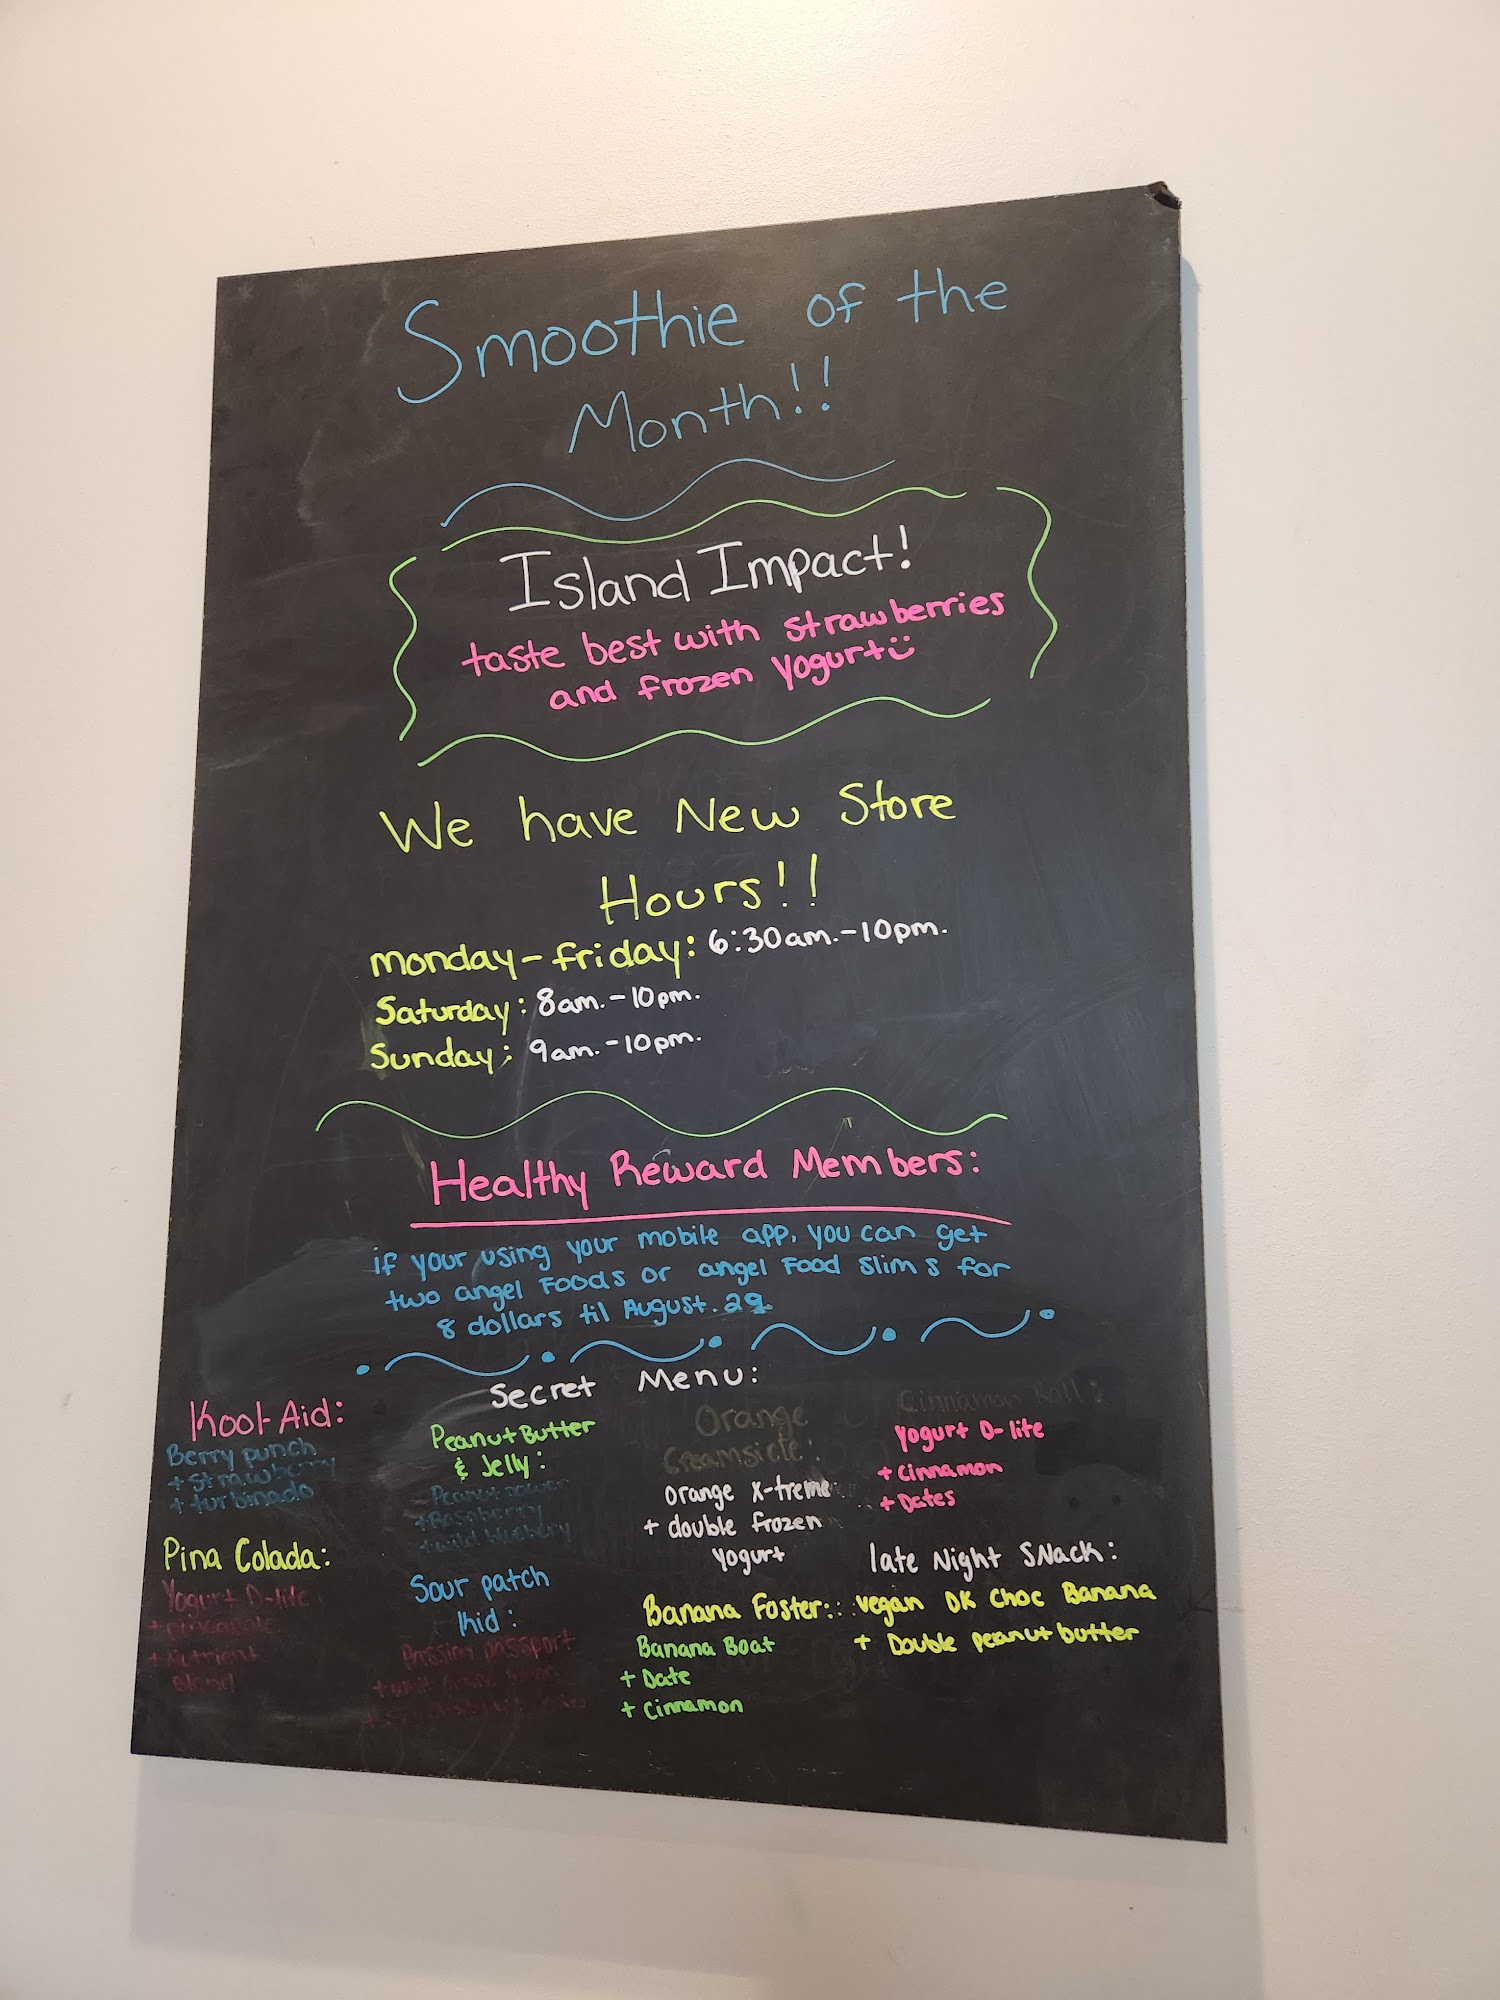 Smoothie of the
Month!!
Island Impact!
taste best with strawberries
and frozen yogurt
We have New Store
Hours!!
monday-friday: 6:30am.-10pm.
Saturday: 8am.-10pm.
Sunday: 9am.-10pm.
Healthy Reward Members:
if your using your mobile app, you can get
two angel Foods or angel Food Slims for
8 dollars til August.29
Secret Menu:
Kool-Aid:
Berry punch
+ strawberry
+ turbinado
Pina Colada:
Yogurt D-lite
+ pineapple
+ Nutrient
Blend
Peanut Butter
& Jelly:
Peanut power
+ Raspberry
+ wild blueberry
Sour patch
kid:
Passion passport
Orange
Creamsicle:
Orange X-treme
+ double frozen
yogurt
Banana Foster:
Banana Boat
+ Date
+ Cinnamon
Cinnamon Roll:
Yogurt D-lite
+ Cinnamon
+ Dates
late Night SNack:
vegan DK Choc Banana
+ Double peanut butter